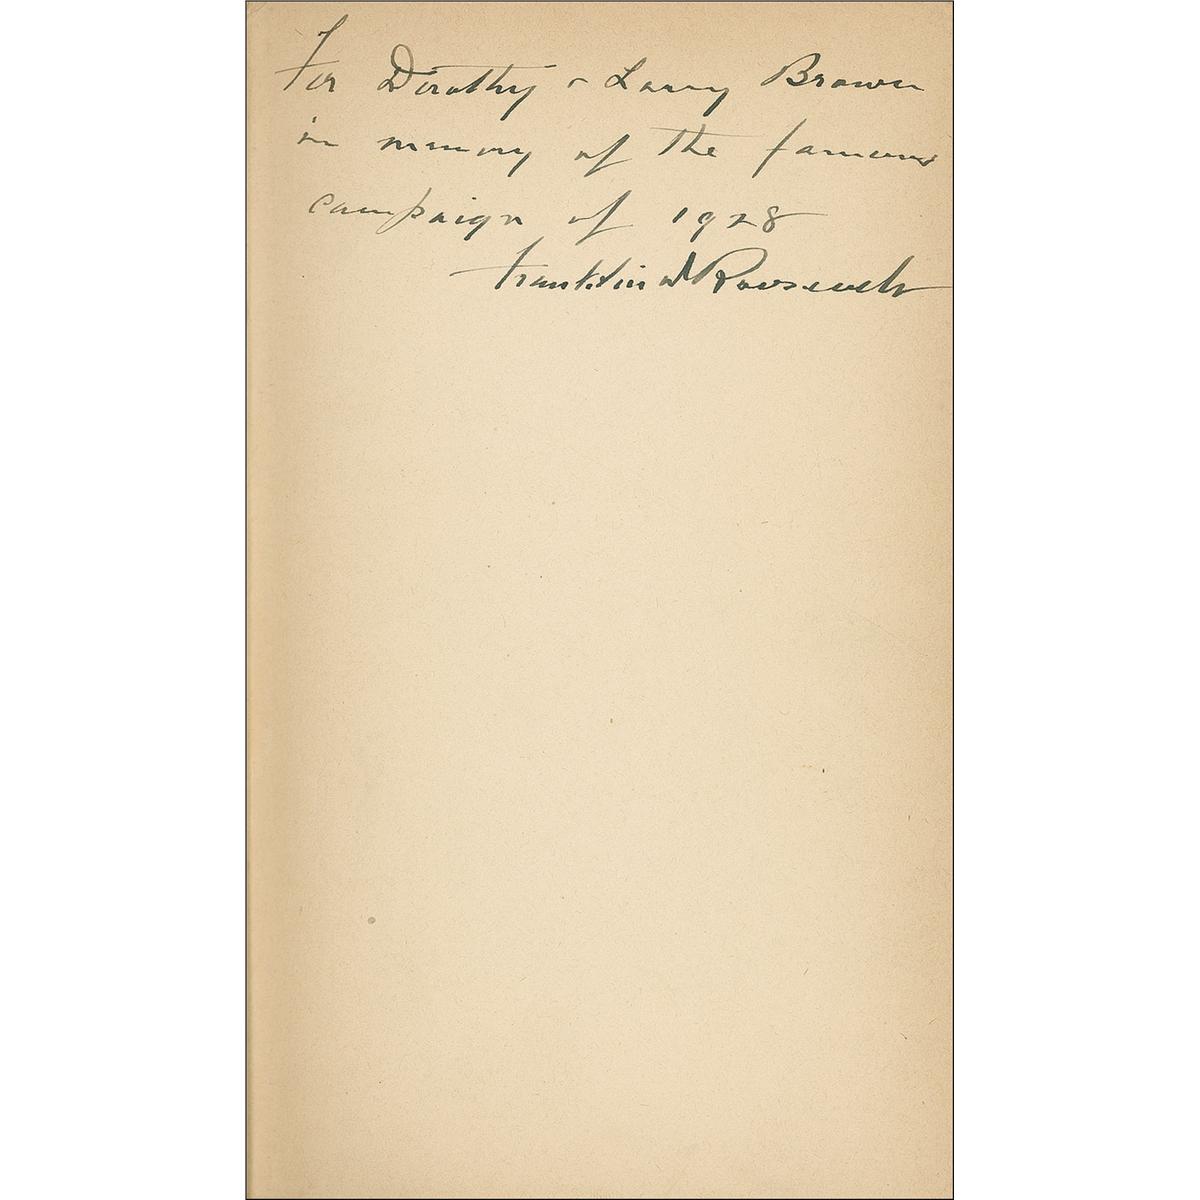 For Dorothy & Larry Brown
in memory of the famous
campaign of 1928
Franklin D Roosevelt